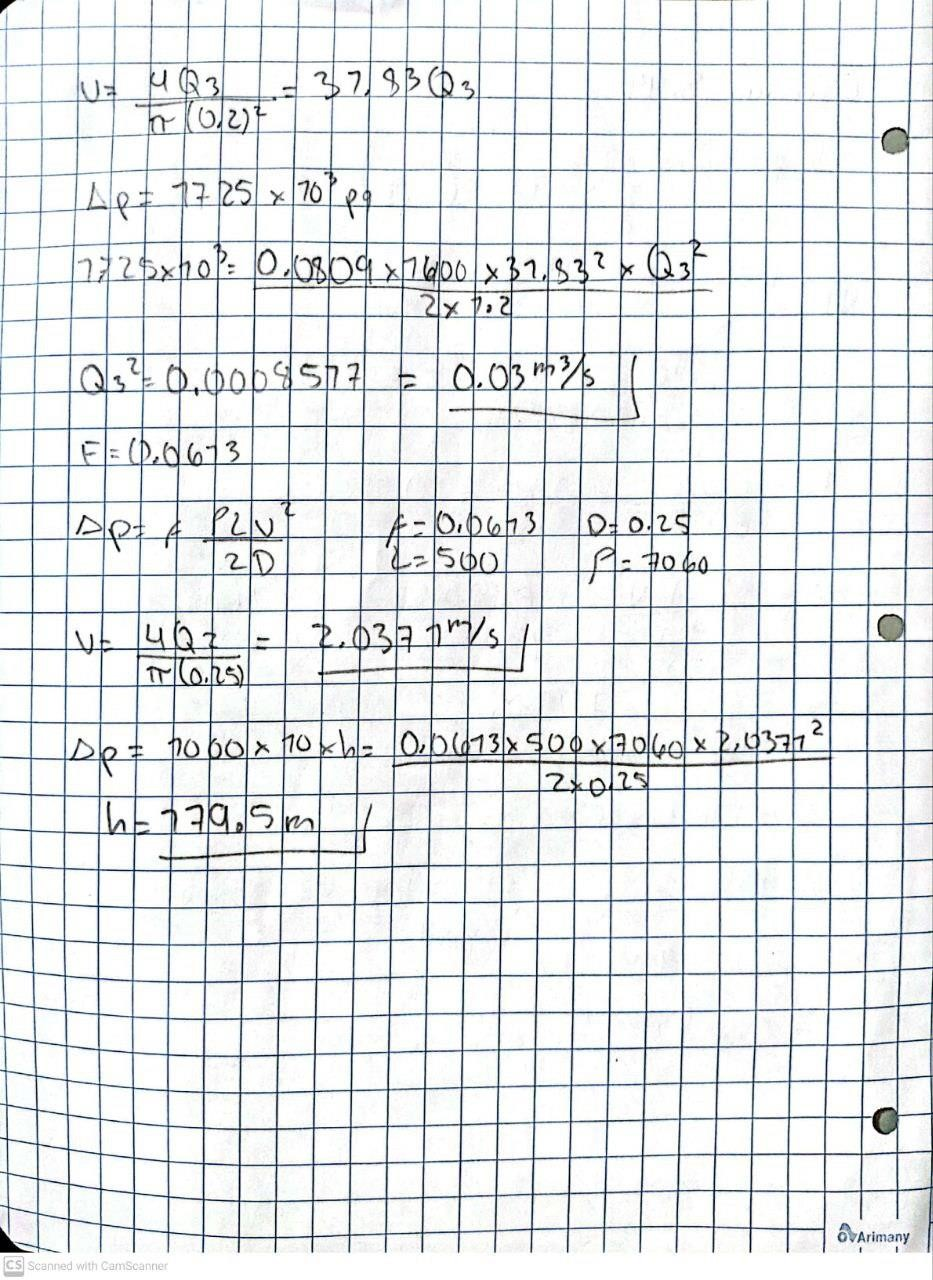 V= 4Q3 / π(0.2)² = 31.83Q3
Δp= 1725 x 10³ pa
1725x10³= 0.0809 x 1400 x 31.83² x Q3² / 2x1.2
Q3²= 0.0008577 = 0.03 m³/s
F=0.0613
Δp= f ρLv² / 2D f=0.0613 D=0.25
L=500 ρ=7060
V= 4Q2 / π(0.25) = 2.0371 m/s
Δp= 1000x10xh= 0.0613x500x7060x2.0371² / 2x0.25
h=179.5m
Arimany
CS Scanned with CamScanner